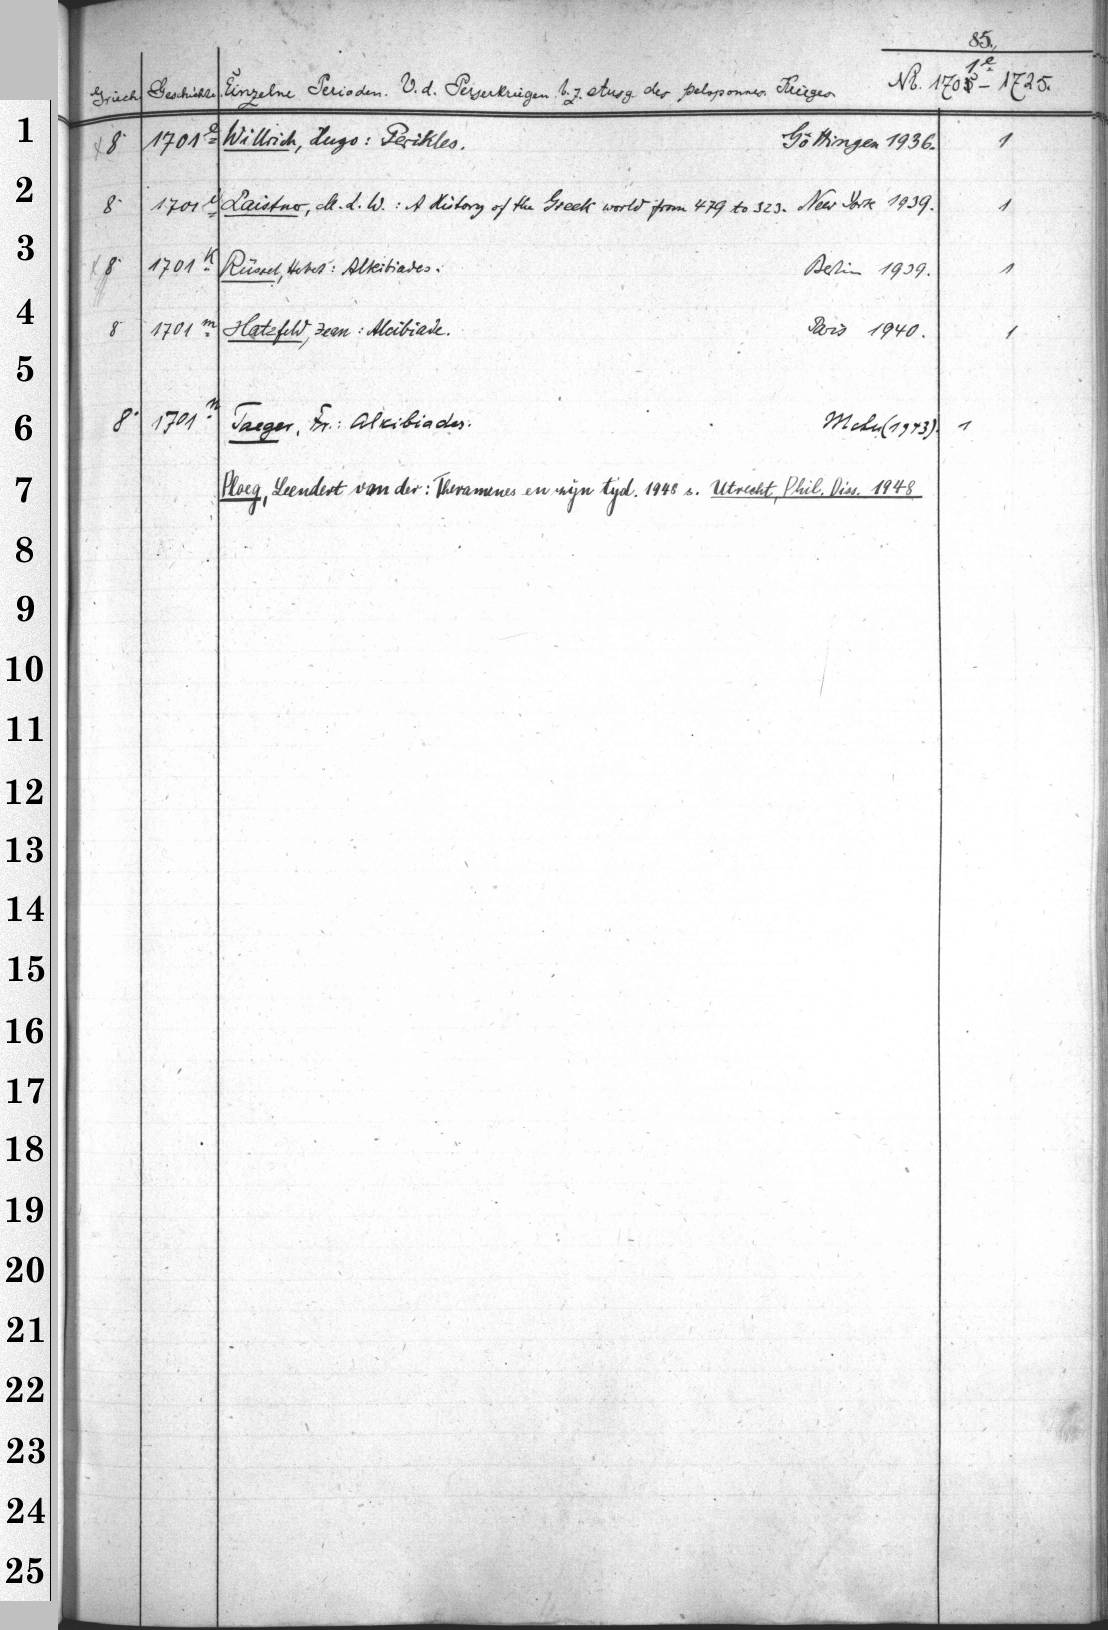 85.
Griech. Geschichte. Einzelne Perioden. V. d. Perserkriegen b. z. Ausg. des peloponnes. Krieges. Nr. 1701 e - 1725.
1 8° 1701 e Willrich, Hugo: Perikles. Göttingen 1936. 1
2 8° 1701 Laistner, M. L. W.: A History of the Greek world from 479 to 323. New York 1939. 1
3 8° 1701 k Rüssel, Herbert: Alkibiades. Berlin 1939. 1
4 8 1701 m Hatzfeld, Jean: Alcibiade. Paris 1940. 1
5
6 8° 1701 n Taeger, Fr.: Alkibiades. (1943). 1
7 Ploeg, Leendert van der: Theramenes en zijn tijd. 1948 s. Utrecht, Phil. Diss. 1948
8
9
10
11
12
13
14
15
16
17
18
19
20
21
22
23
24
25